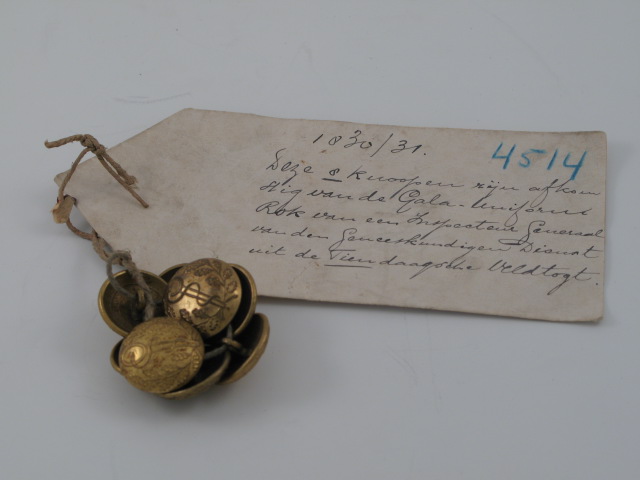 1830/31.
4514
Deze 8 knoopen zijn afkom
stig van de Gala-uniform
Rok van een Inspecteur Generaal
van den Geneeskundigen Dienst
uit de Tiendaagsche Veldtogt.